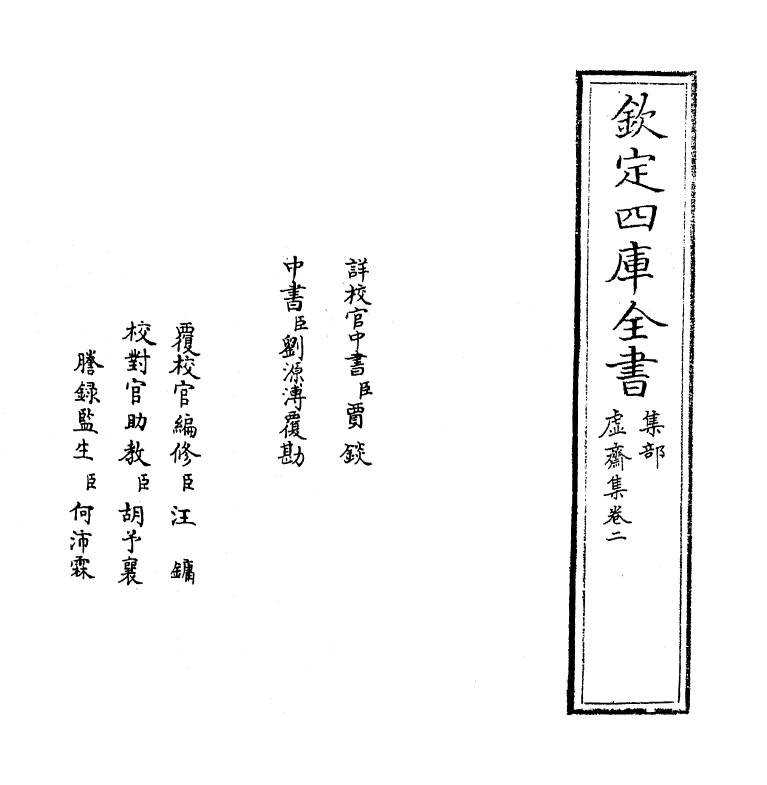 欽定四庫全書
集部
虛齋集卷二
詳校官中書臣賈錟
中書臣劉源溥覆勘
覆校官編修臣汪鏞
校對官助教臣胡予襄
謄錄監生臣何沛霖